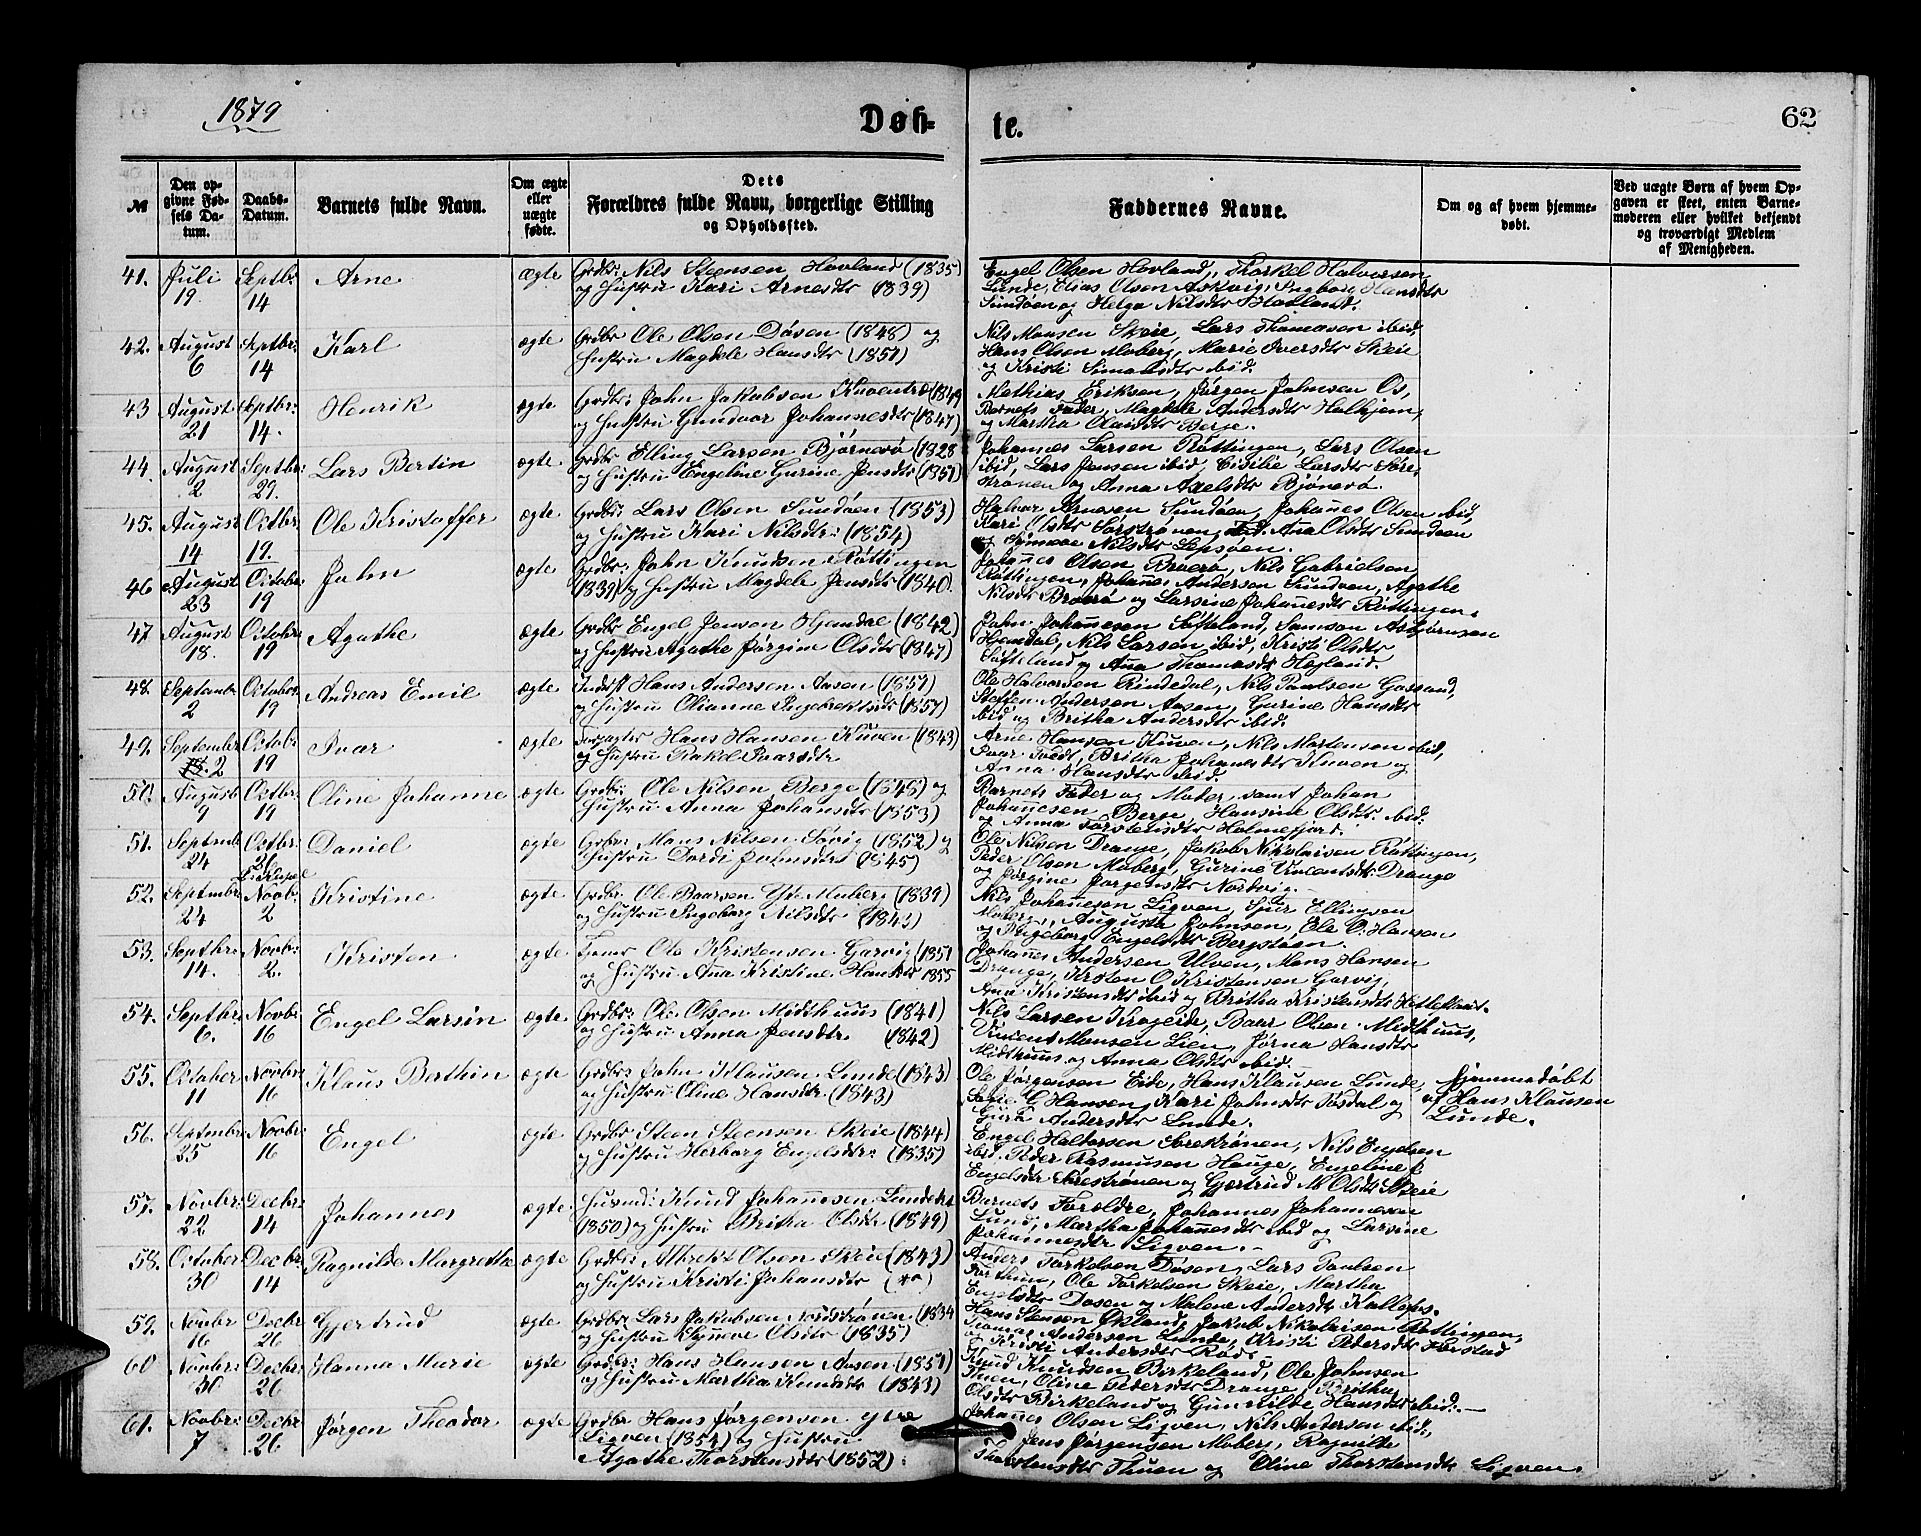 1879
Døb-
te.
62
№
Den op-
givne Fød-
sels Da-
tum.
Daabs-
Datum.
Barnets fulde Navn.
Om ægte
eller
uægte
fødte.
Dets
Forældres fulde Navn, borgerlige Stilling
og Opholdssted.
Faddernes Navne.
Om og af hvem hjemme-
døbt.
Ved uægte Børn af hvem Op-
gaven er skeet, enten Barne-
moderen eller hvilket bekjendt
og troværdigt Medlem
af Menigheden.
41. Juli 19. Septbr: 14 Arne ægte
Grdbr: Nils Steensen Hovland (1835)
og Hustru Kari Arnesdtr (1839)
Engel Olsen Hovland, Torkel Halvorsen
Lunde, Elias Olsen Askvig, Ingbor Hansdtr
Sundøen og Helga Nilsdtr Hovland.
42. August 6 Septbr: 14 Karl ægte
Grdbr Ole Olsen Døsen (1848) og
Hustru Magdele Hansdtr (1851)
Nils Monsen Skeie, Lars Thomasen ibid,
Hans Olsen Moberg, Marie Iversdtr Skeie
og Kristi Simonsdtr ibid.
43 August 21 Septbr: 14. Henrik ægte
Grdbr: John Jakobsen Kuventræ (1849
og Hustru Gundvor Johannesdtr (1847)
Mathias Eriksen, Jørgen Johnsen Os,
Barnets Fader, Magdele Andersdtr Halhjem,
og Martha Olaisdtr Berge.
44. August 2 Septbr: 29. Lars Bertin ægte
Grdbr Elling Larsen Bjørnerø (1828
og Hustru Engeline Gurine Jensdtr (1851)
Johannes Larsen Røttingen, Lars Olsen
ibid, Lars Jensen ibid, Cisilie Larsdtr Søre
Strønen og Anna Axelsdtr Bjønerø.
45. August 14 Octbr. 19. Ole Kristoffer ægte
Grdbr: Lars Olsen Sundøen (1853)
og Hustru Kari Nilsdtr: (1854)
Halvor Arnesen Sundøen, Johannes Olsen ibid,
Kari Olsdtr Sørstrønen, Ana Olsdtr Sundøen
og Nilsdtr Lepsøen.
46 August 23 Octobr: 19 John ægte
Grdbr: John Knudsen Røttingen
(1839) og Hustru Magdele Jensdtr (1840.
Johannes Olsen Brøerø, Nils Gabrielsen
Røttingen, Johannes Andersen Sundøen, Agathe
Nilsdtr Brøerø og Larsine Johannesdtr Røttingen.
47. August 18. Octobr: 19 Agathe ægte
Grdbr Engel Jensen Hjemdal (1842)
og Hustru Agathe Jørgine Olsdtr (1847)
John Johannesen Søfteland, Samson Asbjørnsen
Hjemdal, Nils Larsen ibid, Kristi Olsdtr
Søfteland og Ana Thomasdtr Hegland.
48. Septembr 2 Octobr. 19 Andreas Emil ægte
Inderst Hans Andersen Aasen (1851)
og Hustru Olianne Ingebrektsdtr (1857)
Ole Halvorsen Rindedal, Nils Paulsen Gaasand,
Steffen Andersen Aasen, Gurine Hansdtr
ibid og Britha Andersdtr ibid.
49. September 2 Octobr 19 Ivar ægte
Forpagter Hans Hansen Kuven (1843)
og Hustru Rakel Ivarsdtr
Arne Hansen Kuven, Nils Mortensen ibid,
Ivar Tvedt, Britha Johannesdtr Kuven og
Anna Hansdtr ibid.
50. August 9 Octbr: 19 Oline Johanne ægte
Grdbr: Ole Nilsen Berge (1848) og
Hustru Anna Johansdtr (1853)
Barnets Fader og Moder, samt Johan
Johannesen Berge, Hansine Olsdtr: ibid:
og Anna Torstensdtr Holmefjord.
51. Septemb 24 Octbr: 26 Daniel ægte
Grdbr: Mons Nilsen Søvig (1852) og
Hustru Dordi Johnsdtr (1845)
Ole Nilsen Drange, Jakob Nikolaisen Røttingen,
Peder Olsen Moberg, Gurine Vincentsdtr Drange
og Jørgine Jørgensdtr Nordvig.
52. Septembr 24 Novbr. 2 Kristine ægte
Grdbr Ole Baarsen Ytre Moberg (1839)
og Hustru Ingeborg Nilsdtr (1843)
Nils Johannesen Ligven, Sjur Ellingsen
Moberg, Augusta Johnsen, Ole O. Hansen
og Ingeborg Engelsdtr Bergstøen.
53. Septbr: 14. Novbr. 2. Kristen ægte
Tjener Ole Kristensen Garvig (1851
og Hustru Ana Kristine Hansdtr 1855
Johannes Andersen Ulven, Mons Hansen
Drange, Kristen O Kristensen Garvig,
Anna Kristensdtr ibid og Britha Kristensdtr Hetlefland.
54. Septbr: 6. Novbr: 16 Engel Larsin ægte
Grdbr: Ole Olsen Midthuus (1841)
og Hustru Anna Jensdtr. (1842)
Nils Larsen Kragerde, Baar Olsen Midthuus,
Vincent Monsen Lien, Jørna Hansdtr
Midthuus og Anna Olsdtr ibid.
55. October 11 Novbr: 16 Klaus Berthin ægte
Grdbr: John Klausen Lunde (1843)
og Hustru Oline Hansdtr (1843)
Ole Jørgensen Eide, Hans Klausen Lunde,
Sofie C Hansen, Kari Johnsdtr Tøsdal og
Guri Andersdtr Lunde.
hjemmedøbt
af Hans Klausen
Lunde.
56. Septembr: 25 Novbr: 16 Engel ægte
Grdbr Steen Steensen Skeie (1844)
og Hustru Herborg Engelsdtr: (1835)
Engel Haldorsen Sørestrønen, Nils Engelsen
ibid. Peder Rasmusen Hauge, Engeline
Engelsdtr Sørestrønen og Gjertrud M. Olsdtr Skeie
57. Novbr: 22 Decbr: 14 Johannes ægte
Husmd: Knud Johannesen Lunde
(1850) og Hustru Britha Olsdtr (1849)
Barnets Forældre, Johannes Johannesen
Lund, Martha Johannesdtr ibid og Larsine
Johannesdtr Ligven.
58. October 30 Decbr 14 Ragnilde Margrethe ægte
Grdbr: Albrekt Olsen Skeie (1843)
og Hustru Kristi Johansdtr
Anders Torkelsen Døsen, Lars Paulsen
Tørthun, Ole Torkelsen Skeie, Martha
Engelsdtr Døsen og Malene Andersdtr Kallefos.
59. Novbr 16 Decbr 26 Gjertrud ægte
Grdbr: Lars Jakobsen Nordstrønen (1834
og Hustru Synneve Olsdtr (1835)
Hans Stenson Økland, Jakob Nikolaisen Røttingen,
Tomas Andersen Lunde, Kristi Pedersdtr Harstad
og Kristi Andersdtr Rød.
60 Novbr: 30 Decbr: 26 Hanna Marie ægte
Grdbr: Hans Hansen Aasen (1851)
og Hustru Martha Knudsdtr (1843)
Knud Knudsen Birkeland, Ole Johnsen
Tuen, Oline Pedersdtr Drange, Britha
Olsdtr Birkeland og Gunhilde Hansdtr ibid.
61. Novbr: 7 Decbr 26 Jørgen Theodor ægte
Grdbr Hans Jørgensen ytre
Ligven (1854) og Hustru
Agathe Thorstensdtr (1852).
Johannes Olsen Ligven, Nils Andersen ibid,
Jens Jørgensen Moberg, Ragnilde
Thorstensdtr Thuen og Oline Thorstensdtr Ligven.